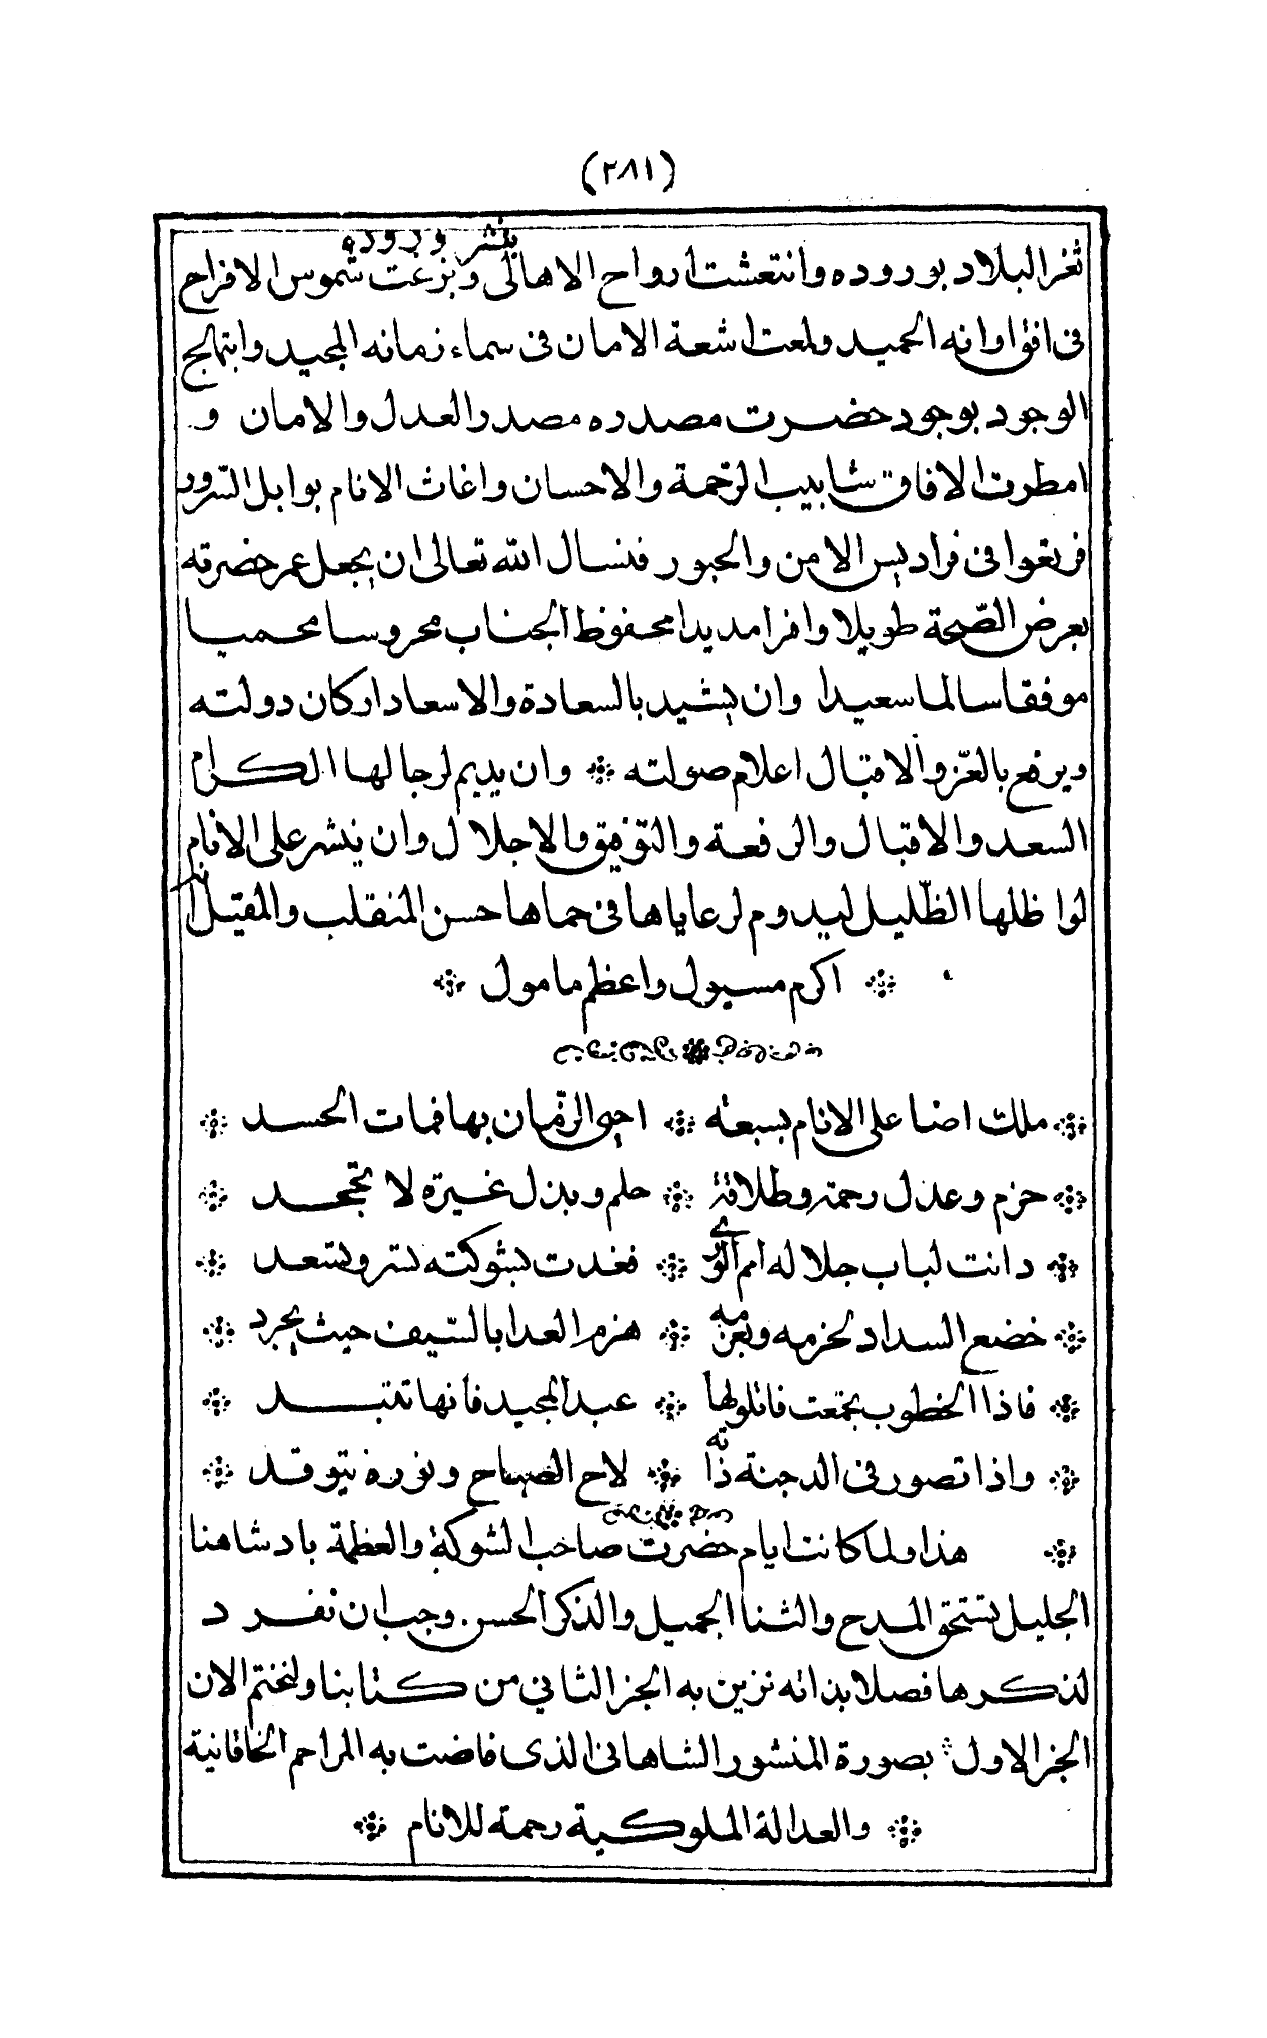 (٢٨١)
ثغر البلاد بوروده وانتعشت ارواح الاهالى بنشر وروده وبزغت شموس الافراح
فى افق اوانه الحميد ولمعت اشعة الامان فى سماء زمانه المجيد وابتهاج
الوجود بوجود حضرت مصدره مصدر العدل والامان و
امطرت الافاق شابيب الرّحمة والاحسان واغاث الانام بوابل السّرور
فربغوا فى فراديس الامن والحبور فنسال الله تعالى ان يجعل عمر حضرته
بعرض الصّحة طويلا وافرا مديدا محفوظ الجناب محروسا محميا
موفقا سالما سعيدا وان يشيد بالسعادة والاسعاد اركان دولته
ويرفع بالعزّ والاقبال اعلام صولته ⁘ وان يديم لرجالها الكرام
السعد والاقبال والرفعة والتّوفيق والاجلال وان ينشر على الانام
لوا ظلها الظّليل ليدوم لرعاياها فى حماها حسن المنقلب والمقيل
⁘ اكرم مسيول واعظم مامول ⁘
⁘ ملكٌ اضا على الانام بسبعة ⁘ احيى الزّمان بها فمات الحسد ⁘
⁘ حزم وعدل رحمة وطلاقة ⁘ حلم وبذل غيرة لا تجحد ⁘
⁘ دانت لباب جلاله امم الورى ⁘ فغدت بشوكته تسر وتسعد ⁘
⁘ خضع السداد لحزمه وبعزمه ⁘ هزم العدا بالسّيف حيث يجرد ⁘
⁘ فاذا الخطوب تجمّعت فاتلو لها ⁘ عبد المجيد فانها تتبدد ⁘
⁘ واذا تصور فى الدجنة ذاته ⁘ لاح الصباح ونوره يتوقد ⁘
⁘ هذا ولما كانت ايام حضرت صاحب الشوكة والعظمة بادشاهنا
الجليل تستحق المدح والثنا الجميل والذكر الحسن. وجب ان نفرد
لذكرها فصلا بذاته نزين به الجز الثانى من كتابنا ولنختم الان
الجز الاول بصورة المنشور الشاهانى الذى فاضت به المراحم الخاقانية
⁘ والعدالة الملوكية رحمة للانام ⁘